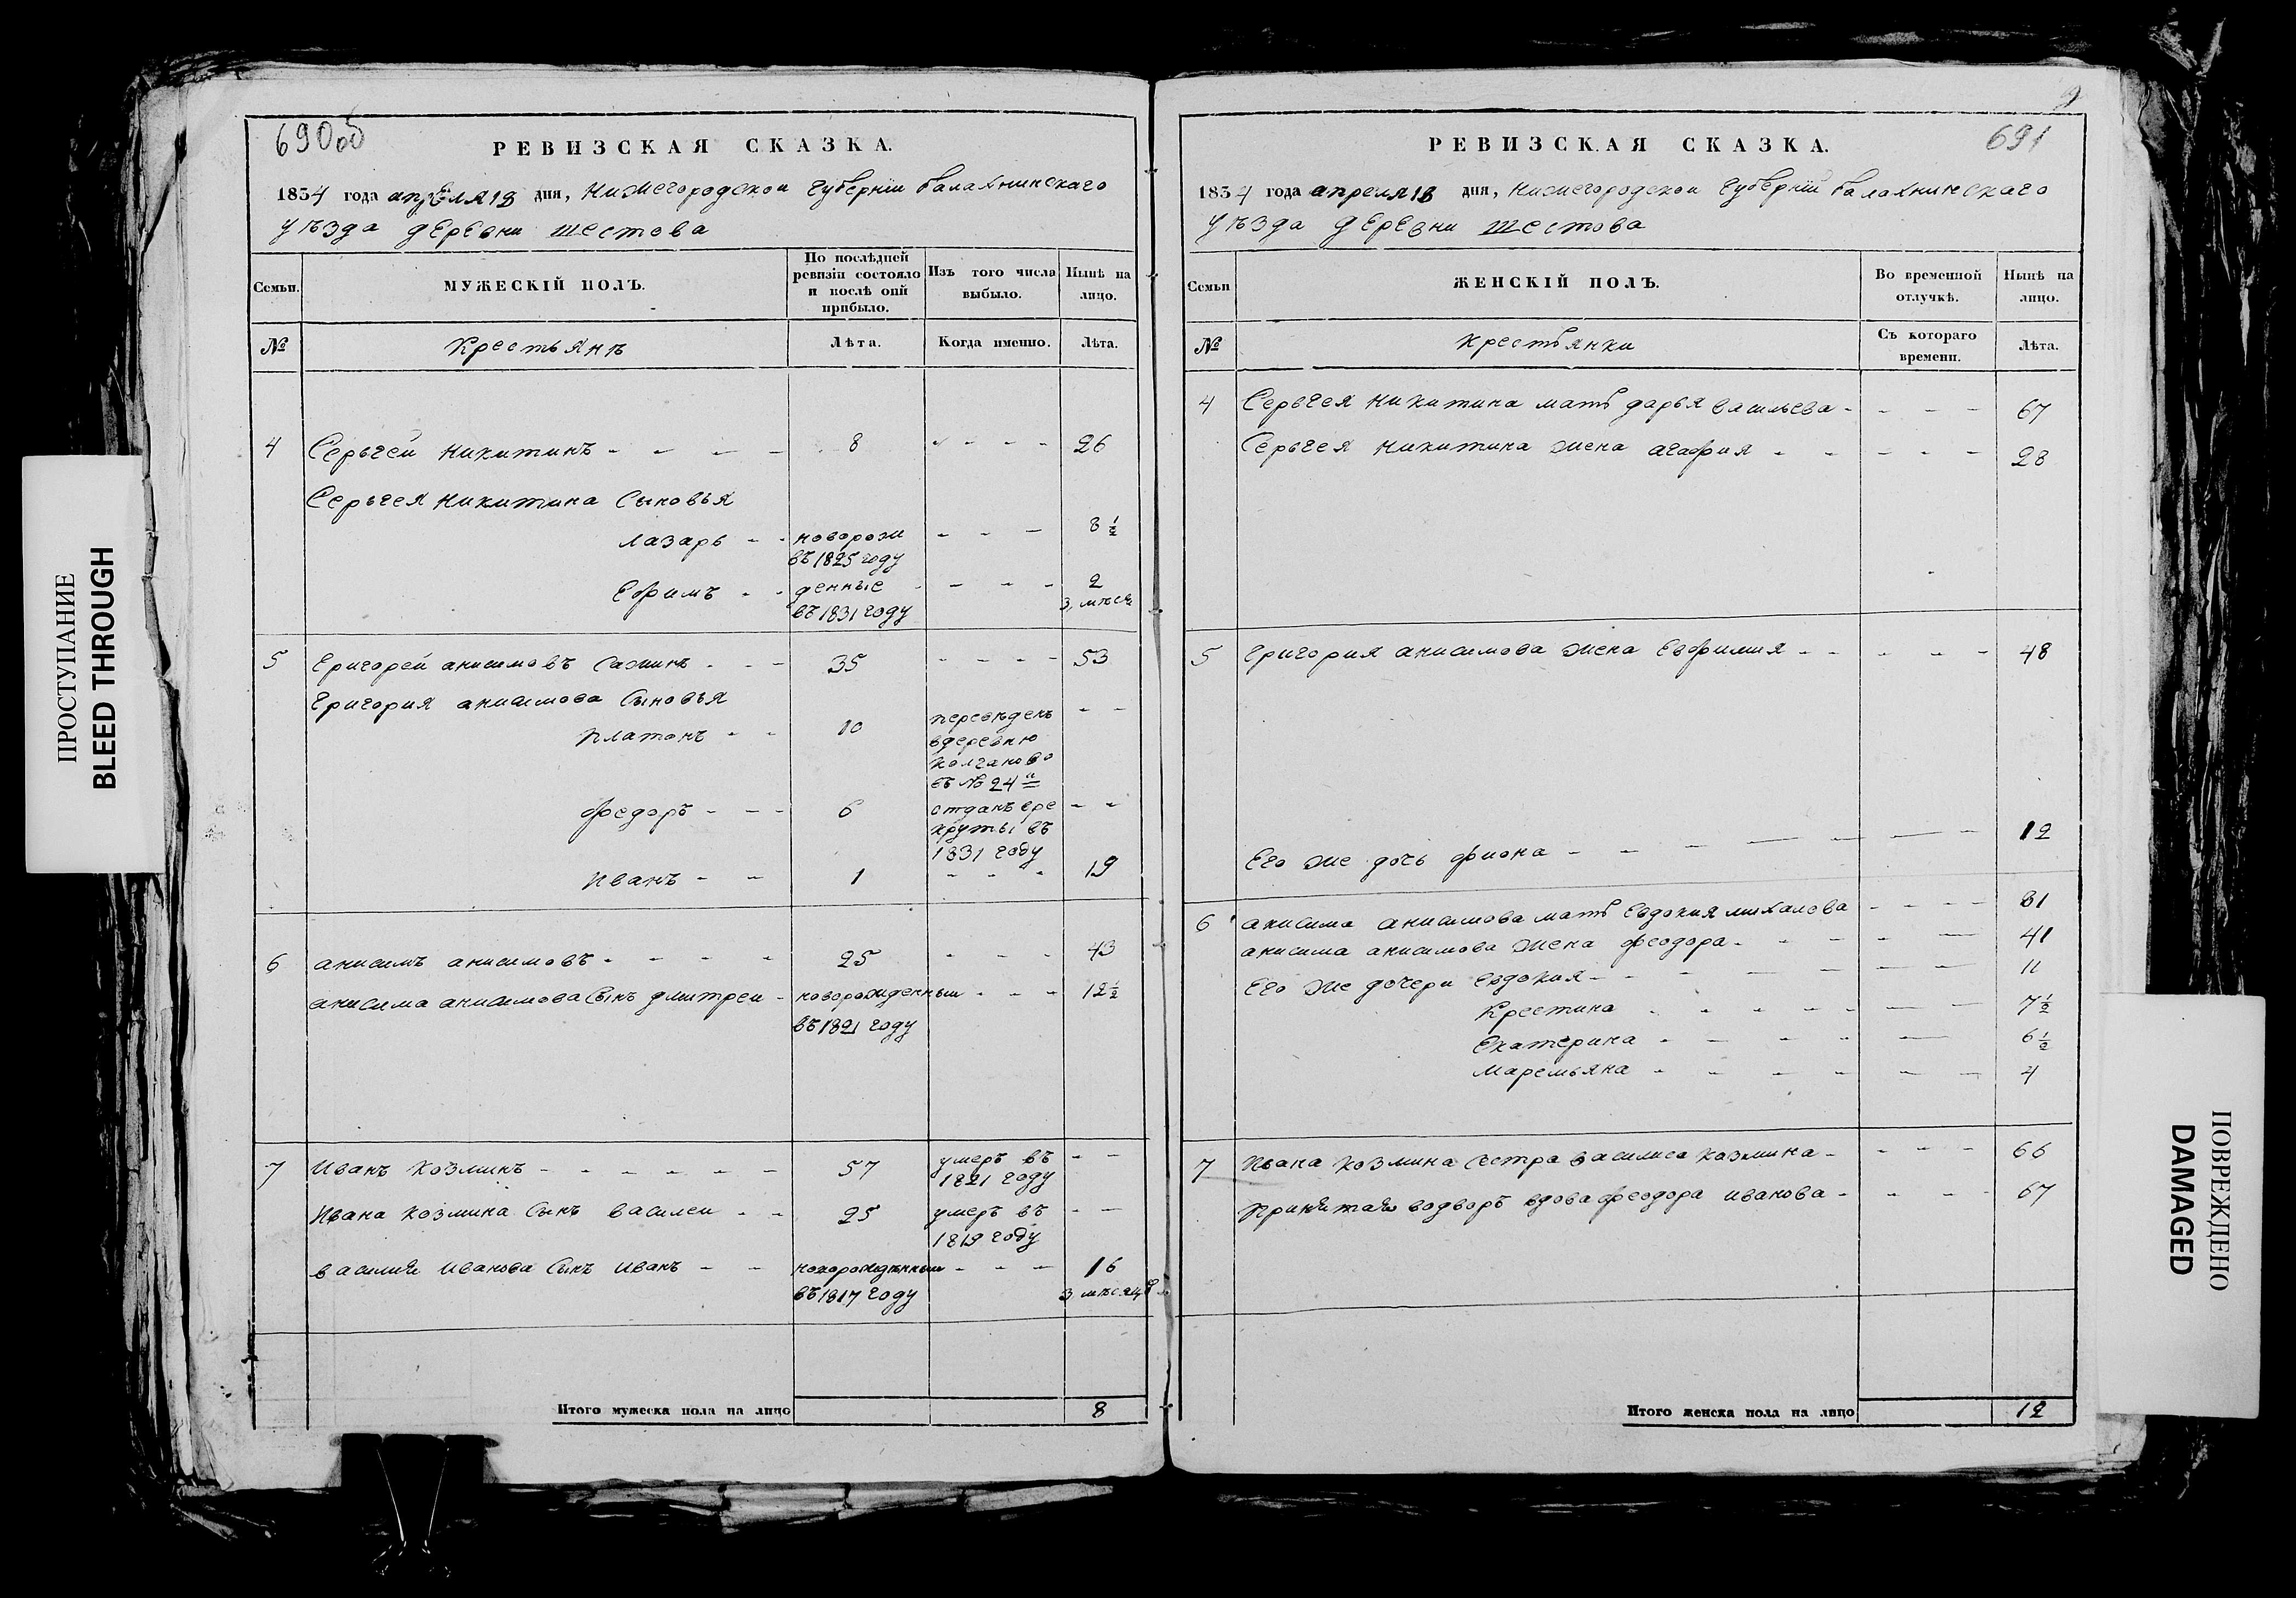 690об
РЕВИЗСКАЯ СКАЗКА.
1834 года апрЕля 18 дня, Нижегородской губернiи балахнинскаго
уѣзда дЕрЕвни шестова
Семьи.
МУЖЕСКIЙ ПОЛЪ.
По послѣдней ревизiи состояло и послѣ оной прибыло.
Изъ того числа выбыло.
Нынѣ на лицо.
№
Крестьянъ
Лѣта.
Когда именно.
Лѣта.
4 Серьгей Никитинъ - - - - 8 - - - - 26
Серьгея Никитина Сыновья
Лазарь - - новорож - - - 8 1/2
въ 1825 году
Ефимъ - - денные - - - - 2
въ 1831 году 3 мѣся
5 Григорей анисимовъ - - - 35 - - - - 53
Григория анисимова Сыновья
Платонъ - - 10 переведенъ - -
вдеревню
въ № 24 й
федоръ - - - 6 отданъ вре - -
круты въ
1831 году
Иванъ - - 1 - - - 19
6 анисимъ анисимовъ - - - - 25 - - - 43
анисима анисимова Сынъ дмитреи - новорожденныи - - - 12 1/2
въ 1821 году
7 Иванъ Козминъ - - - - - - 57 умеръ въ - -
1821 году
Ивана Козмина Сынъ василеи - - 25 умеръ въ - -
1819 году
василия Иванова Сынъ Иванъ - - новорожденныи - - - 16
въ 1817 году 3 мѣсяц
Итого мужеска пола на лицо 8
9
691
РЕВИЗСКАЯ СКАЗКА.
1834 года апреля 18 дня, нижегородской губернiй балахнинскаго
уѣзда дЕрЕвни шестова
Семьи
ЖЕНСКIЙ ПОЛЪ.
Во временной отлучкѣ.
Нынѣ на лицо.
№
крестьянки
Съ котораго времени.
Лѣта.
4 Серьгея Никитина мать дарья васильева - - - - 67
Серьгея Никитина жена агафия - - - - - 28
5 григория анисимова жена Евфимия - - - - - 48
Его же дочь фиона - - - - - - - 12
6 анисима анисимова мать Евдокия михалева - - - - 81
анисима анисимова жена феодора - - - - - 41
Его же дочери Евдокия - - - - - - - 11
Крестина - - - - - - - 7 1/2
Екатерина - - - - - 6 1/2
Маремьяна - - - - - - 4
7 Ивана Козмина Сестра василиса Казмина - - - - 66
принятая водворъ вдова феодора иванова - - - 67
Итого женска пола на лицо 12
ПРОСТУПАНИЕ
BLEED THROUGH
ПОВРЕЖДЕНО
DAMAGED